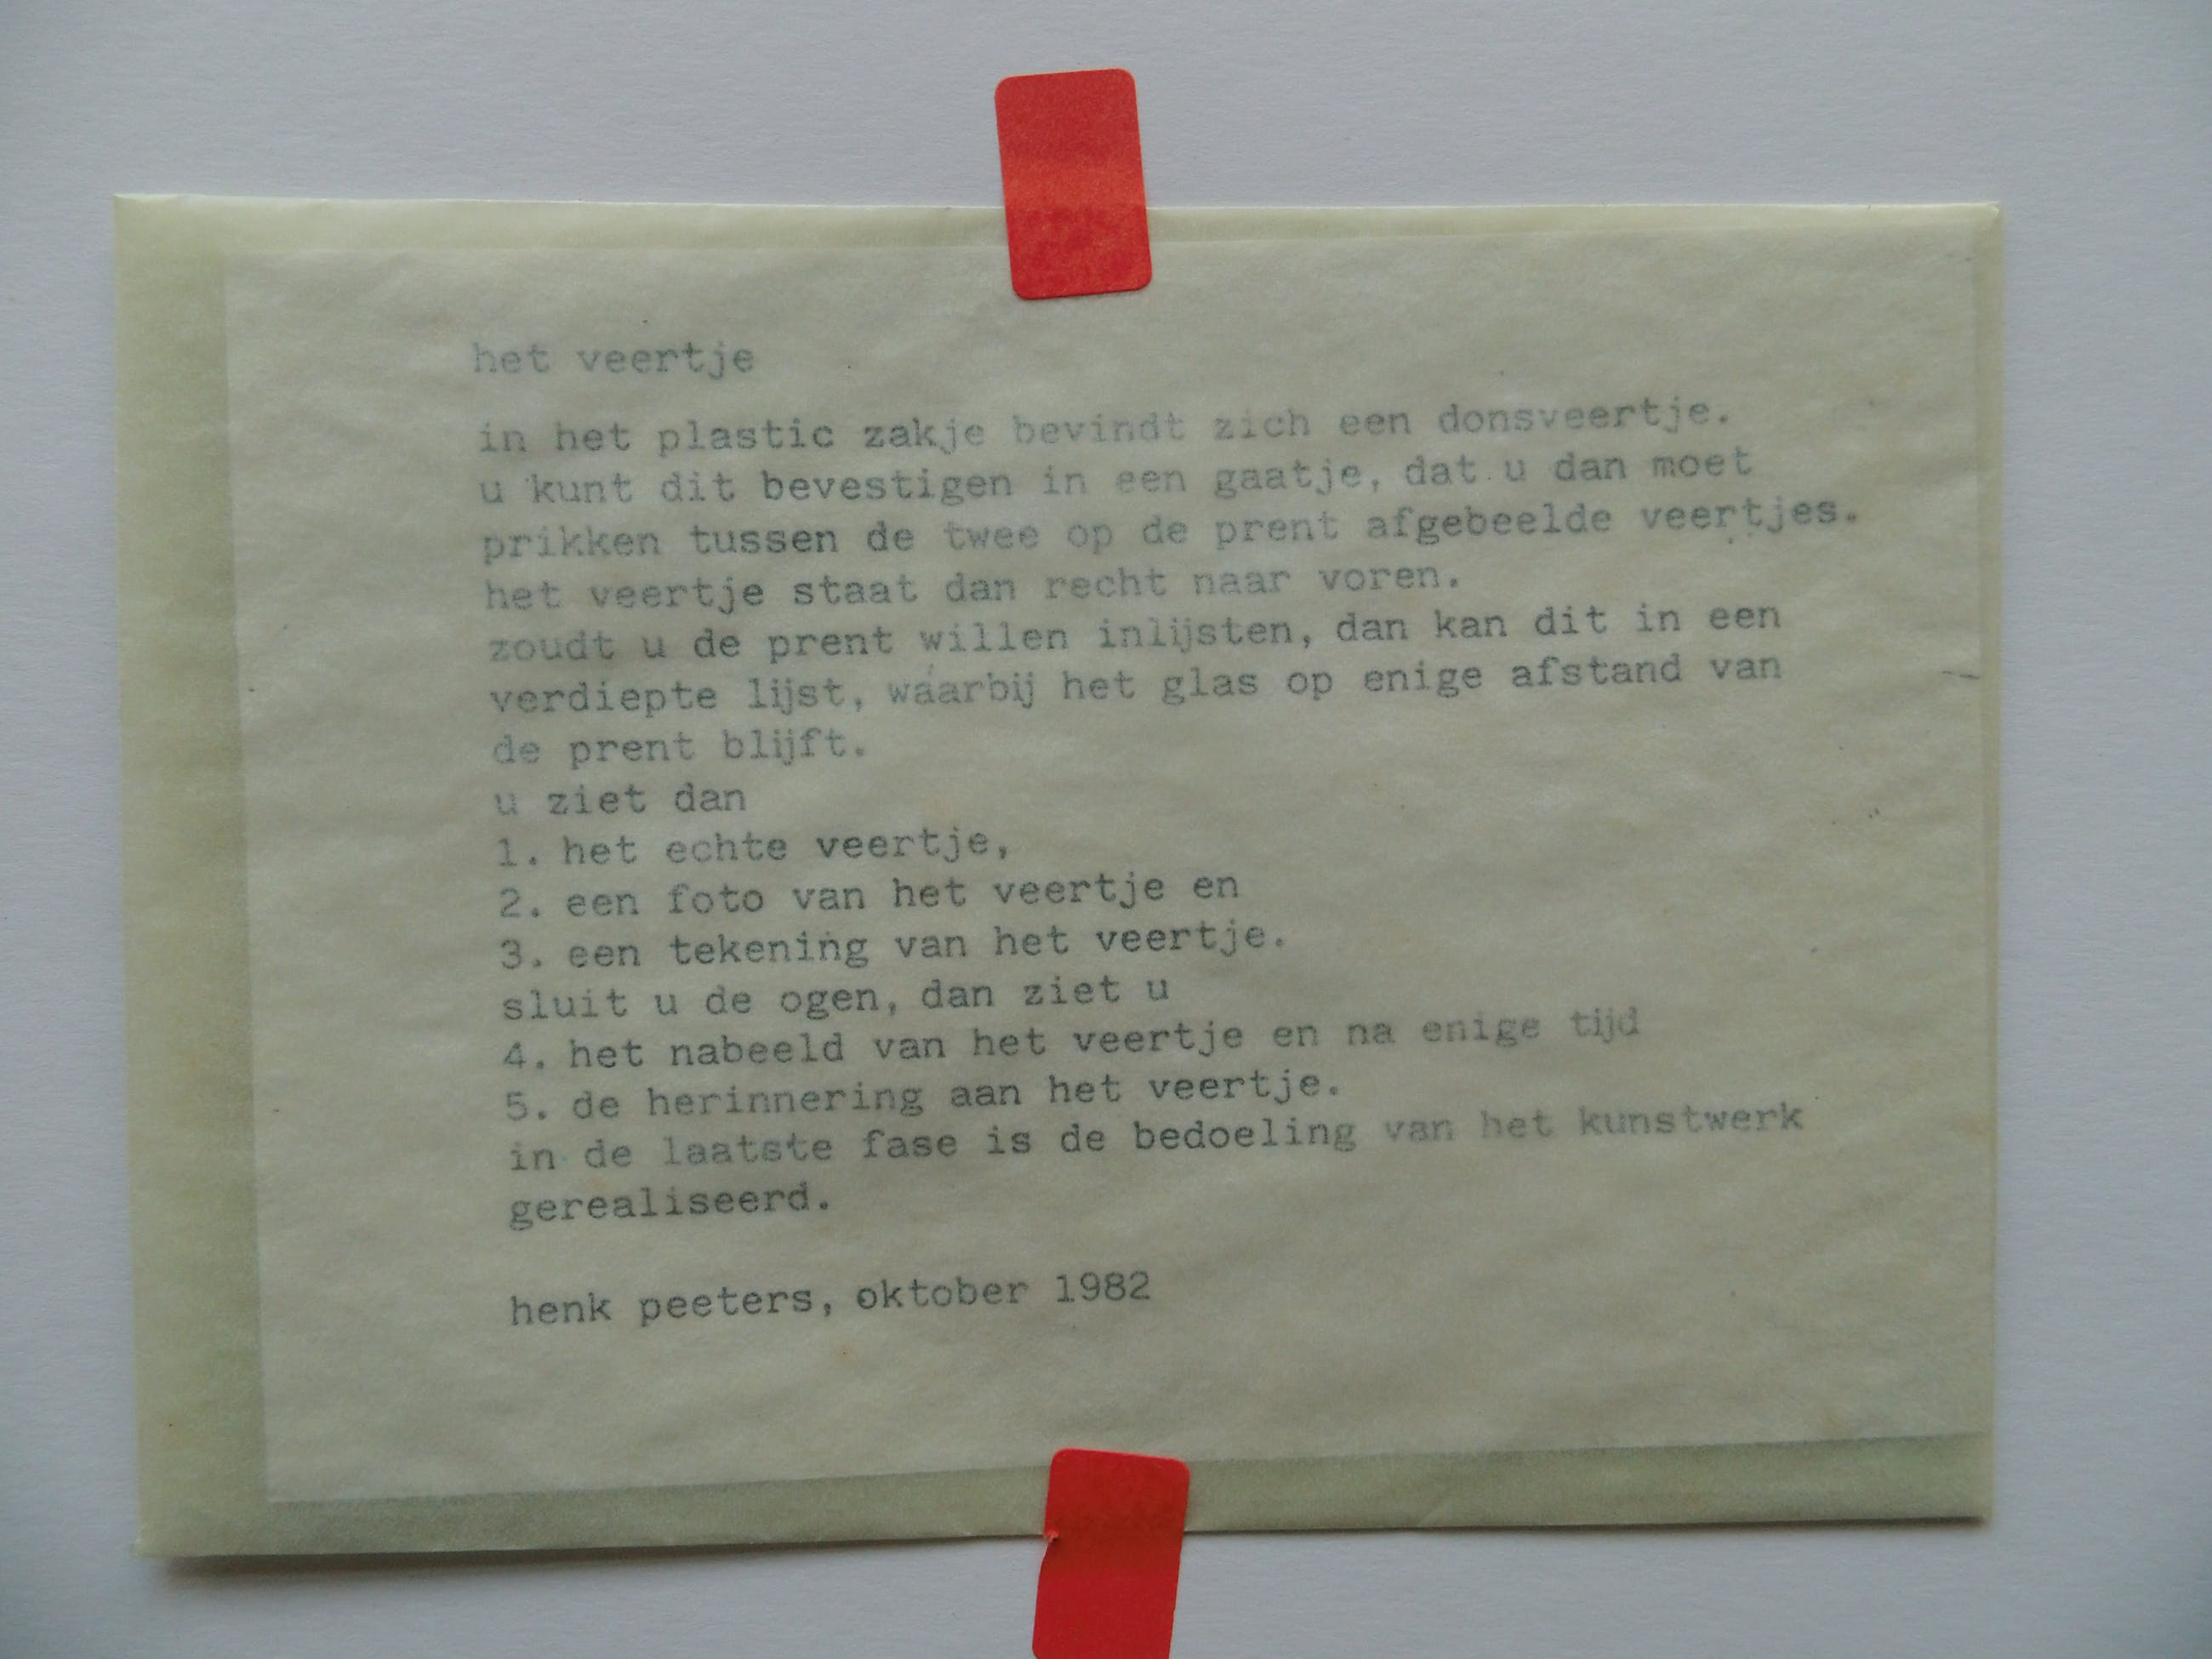 het veertje
in het plastic zakje bevindt zich een donsveertje.
u kunt dit bevestigen in een gaatje, dat u dan moet
prikken tussen de twee op de prent afgebeelde veertjes.
het veertje staat dan recht naar voren.
zoudt u de prent willen inlijsten, dan kan dit in een
verdiepte lijst, waarbij het glas op enige afstand van
de prent blijft.
u ziet dan
1. het echte veertje,
2. een foto van het veertje en
3. een tekening van het veertje.
sluit u de ogen, dan ziet u
4. het nabeeld van het veertje en na enige tijd
5. de herinnering aan het veertje.
in de laatste fase is de bedoeling van het kunstwerk
gerealiseerd.
henk peeters, oktober 1982